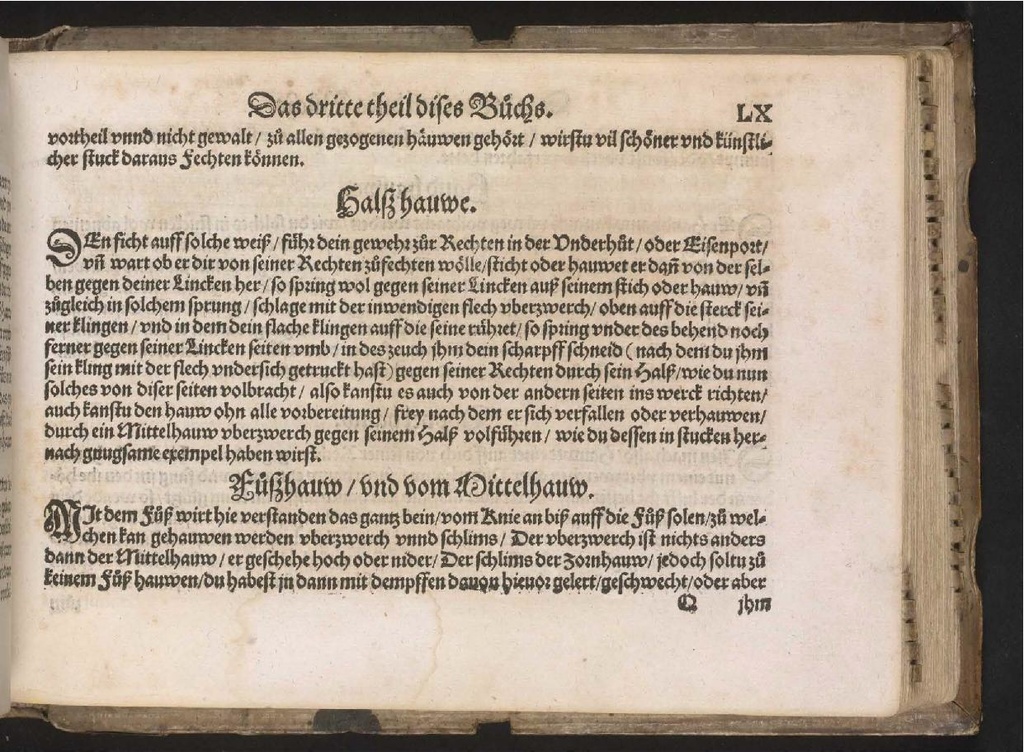 Das dritte theil dises Bůchs.
LX
vortheil vnnd nicht gewalt / zů allen gezogenen häuwen gehört / wirstu vil schöner vnd künstli-
cher stuck daraus Fechten können.
Halßhauwe.
DEn ficht auff solche weiß / führ dein gewehr zůr Rechten in der Vnderhůt / oder Eisenport /
vñ wart ob er dir von seiner Rechten zůfechten wölle / sticht oder hauwet er dañ von der sel-
ben gegen deiner Lincken her / so spring wol gegen seiner Lincken auß seinem stich oder hauw / vñ
zůgleich in solchem sprung / schlage mit der inwendigen flech vberzwerch / oben auff die sterck sei-
ner klingen / vnd in dem dein flache klingen auff die seine rühret / so spring vnder des behend noch
ferner gegen seiner Lincken seiten vmb / in des zeuch jhm dein scharpff schneid ( nach dem du jhm
sein kling mit der flech vndersich getruckt hast) gegen seiner Rechten durch sein Halß / wie du nun
solches von diser seiten volbracht / also kanstu es auch von der andern seiten ins werck richten /
auch kanstu den hauw ohn alle vorbereitung / frey nach dem er sich verfallen oder verhauwen /
durch ein Mittelhauw vberzwerch gegen seinem Halß volführen / wie du dessen in stucken her-
nach gnugsame exempel haben wirst.
Fůßhauw / vnd vom Mittelhauw.
MIt dem Fůß wirt hie verstanden das gantz bein / vom Knie an biß auff die Fůß solen / zů wel-
chen kan gehauwen werden vberzwerch vnnd schlims / Der vberzwerch ist nichts anders
dann der Mittelhauw / er geschehe hoch oder nider / Der schlims der Zornhauw / jedoch soltu zů
keinem Fůß hauwen / du habest jn dann mit dempffen davon hievor gelert / geschwecht / oder aber
Q jhm